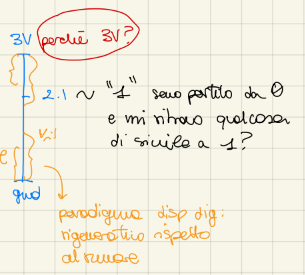 3V perché 3V?
2.1 ~ "1" sono partito da 0
e mi ritrovo qualcosa
di simile a 1?
gnd
paradigma disp dig:
rigenerativo rispetto
al rumore